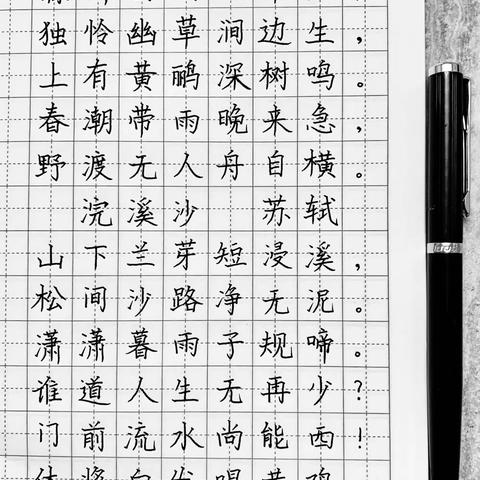 独怜幽草涧边生，
上有黄鹂深树鸣。
春潮带雨晚来急，
野渡无人舟自横。
浣溪沙 苏轼
山下兰芽短浸溪，
松间沙路净无泥。
潇潇暮雨子规啼。
谁道人生无再少？
门前流水尚能西！